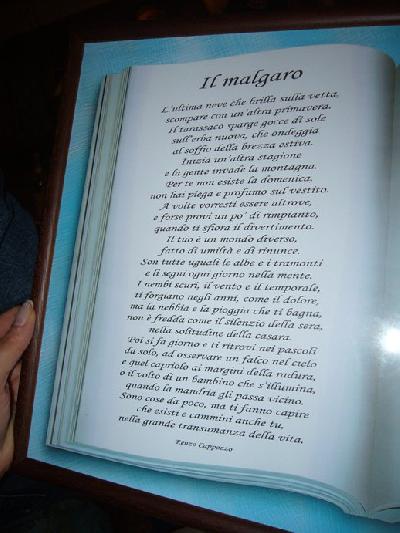 Il malgaro
L'ultima neve che brilla sulla vetta,
scompare con un'altra primavera.
Il tarassaco sparge gocce di sole
sull'erba nuova, che ondeggia
al soffio della brezza estiva.
Inizia un'altra stagione
e la gente invade la montagna.
Per te non esiste la domenica,
non hai piega e profumo sul vestito.
A volte vorresti essere altrove,
e forse provi un po' di rimpianto,
quando ti sfiora il divertimento.
Il tuo è un mondo diverso,
fatto di umiltà e di rinunce.
Son tutte uguali le albe e i tramonti
e li segui ogni giorno nella mente.
I nembi scuri, il vento e il temporale,
ti forgiano negli anni, come il dolore,
ma la nebbia e la pioggia che ti bagna,
non è fredda come il silenzio della sera,
nella solitudine della casara.
Poi si fa giorno e ti ritrovi nei pascoli
da solo, ad osservare un falco nel cielo
e quel capriolo ai margini della radura,
o il volto di un bambino che s'illumina,
quando la mandria gli passa vicino.
Sono cose da poco, ma ti fanno capire
che esisti e cammini anche tu,
nella grande transumanza della vita.